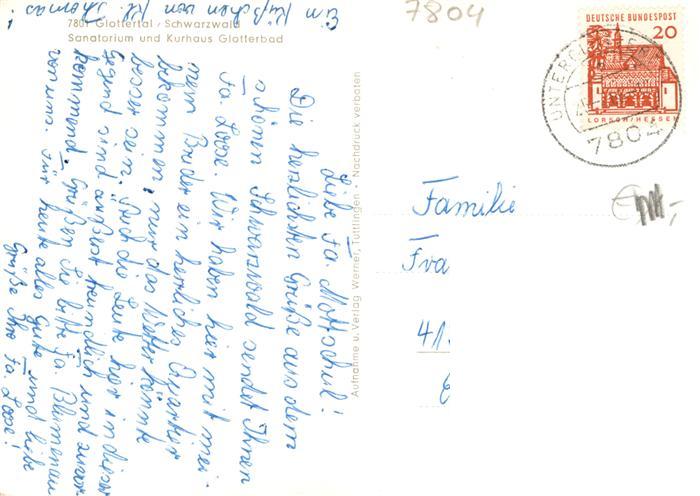 7801 Glottertal / Schwarzwald
Sanatorium und Kurhaus Glotterbad
Ein Küßchen von Kl. Thomas!
Liebe Fa. Mottschul!
Die herzlichsten Grüße aus dem
schönen Schwarzwald sendet Ihnen
Fa. Loose. Wir haben hier mit mei-
nem Bruder ein herrliches Quartier
bekommen, nur das Wetter könnte
besser sein. Auch die Leute hier in dieser
Gegend sind äußerst freundlich und zuvor-
kommend. Grüßen Sie bitte Fa. Blumenau
von uns. Für heute alles Gute und liebe
Grüße Ihre Fa. Loose!
Aufnahme u. Verlag Werner, Tuttlingen • Nachdruck verboten
7804
DEUTSCHE BUNDESPOST
20
LORSCH/HESSEN
7804
Familie
Fva
41